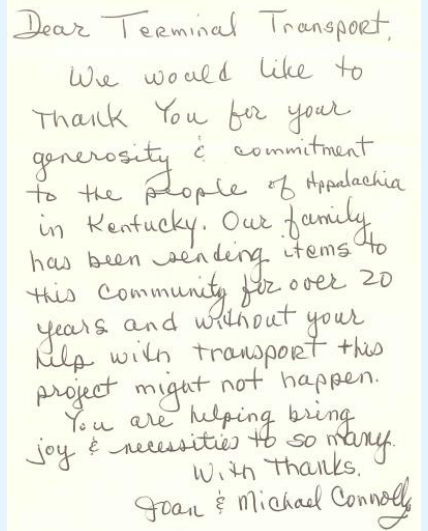 Dear Terminal Transport,
We would like to
Thank You for your
generosity & commitment
to the people of Appalachia
in Kentucky. Our family
has been sending items to
this community for over 20
years and without your
help with transport this
project might not happen.
You are helping bring
joy & necessities to so many.
With Thanks.
Joan & Michael Connolly